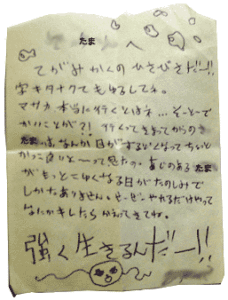 たま へ
てがみかくのひさびさだー!!
字キタナクてもゆるしてネ。
マサカ本当に行くとはネ…そーとーで
かいことが?! 行くってきまってからの
たま っぷなんか目がするどくなってちぃと
かっこ良いと〜って思たの。あじのある たま
がもっとこゆくなる日がたのしみで
しかたありません。せっぜーやれるだけやって
なんかキレたらかえってきてね。
強く生きるんだー!!